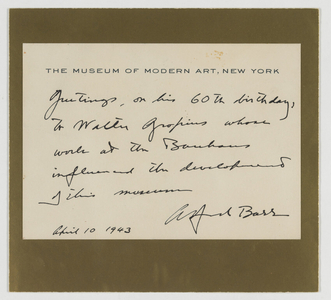 THE MUSEUM OF MODERN ART, NEW YORK
Greetings, on his 60th birthday,
to Walter Gropius whose
work at the Bauhaus
influenced the development
of this museum
Alfred Barr
April 10 1943